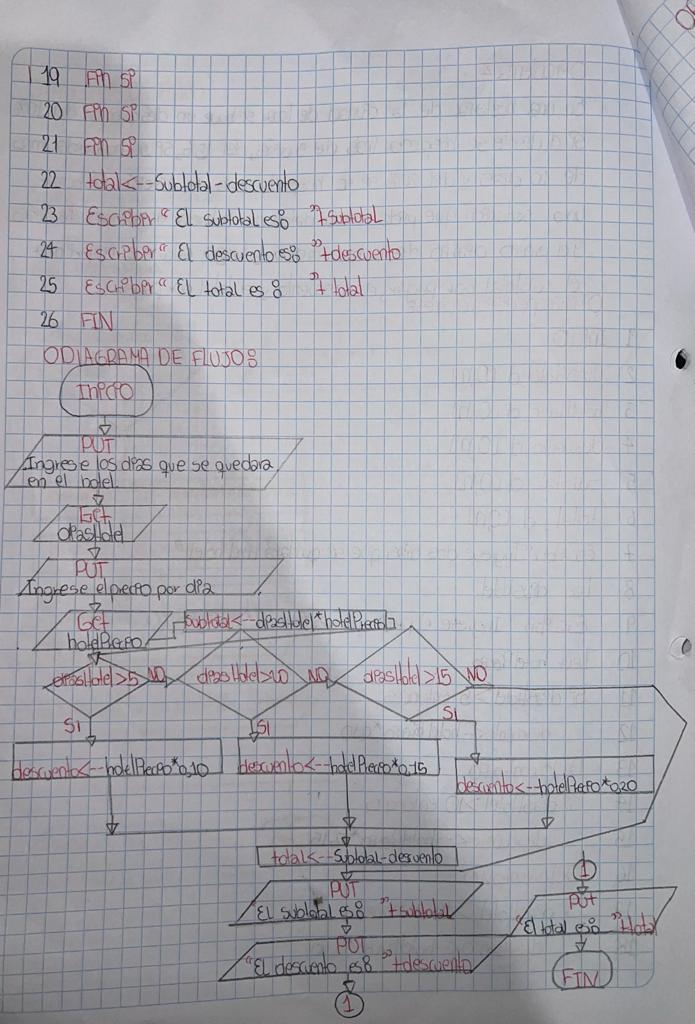 19 Fin Si
20 Fin Si
21 Fin Si
22 total<--Subtotal-descuento
23 Escriber “El subtotal es: ”+subtotal
24 Escriber “El descuento es: ”+descuento
25 Escriber “El total es: ”+total
26 FIN
ODIAGRAMA DE FLUJO:
INICIO
PUT
Ingrese los dias que se quedara
en el hotel.
Get
diasHotel
PUT
Ingrese el precio por dia
Get
hotelPrecio
subtotal<--diasHotel*hotelPrecio
diasHotel>5 NO diasHotel>10 NO diasHotel>15 NO
Si Si Si
descuento<--hotelPrecio*0,10
descuento<--hotelPrecio*0,15
descuento<--hotelPrecio*0,20
total<--Subtotal-descuento
PUT
"El subtotal es: "+subtotal
PUT
"El descuento es: "+descuento
1
1
PUT
"El total es: "+total
FIN